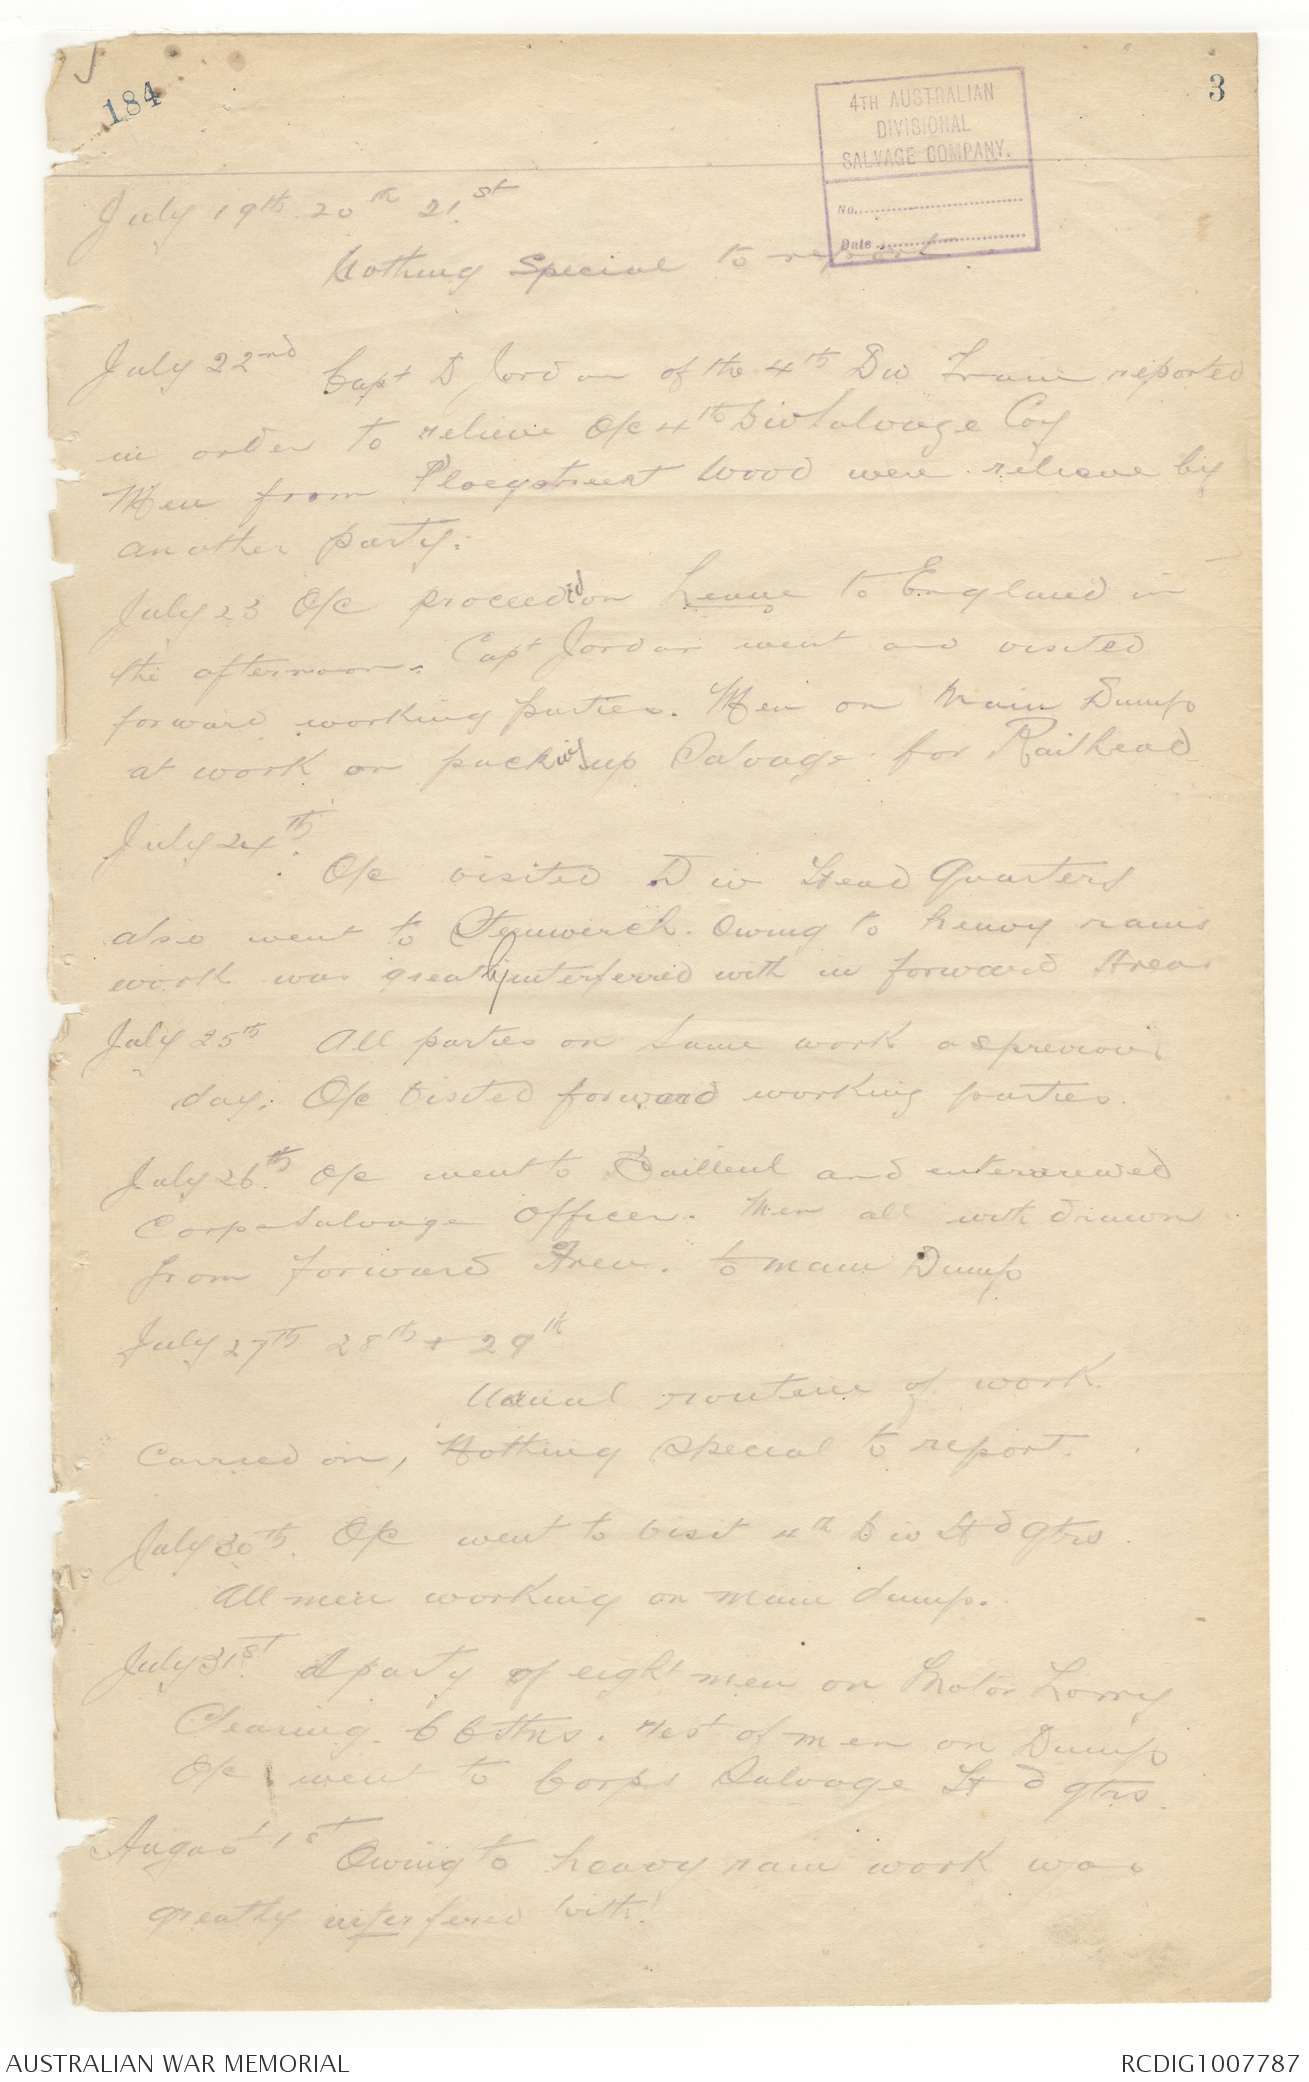 184
3
4TH AUSTRALIAN
DIVISIONAL
SALVAGE COMPANY.
No.
Date
July 19th 20th 21st
Nothing Special to report
July 22nd Capt D Jordan of the 4th Div Train reported
in order to relieve O/c 4th Div Salvage Coy
Men from Ploegstreert Wood were relieve by
another party.
July 23 O/c proceeded on Leave to England in
the afternoon. Capt Jordan went and visited
forward working parties. Men on Main Dump
at work on packing up Salvage for Railhead
July 24th.
O/c visited Div Head Quarters
also went to Steenwerck. Owing to heavy rains
work was greatly interferred with in forward Areas
July 25th All parties on same work as previous
day. O/c visited forward working parties.
July 26th. O/c went to Bailleul and interviewed
Corps Salvage Officer. Men all withdrawn
from forward Area. to main Dump
July 27th 28th + 29th
Usual routine of work
carried on, Nothing special to report.
July 30th. O/c went to visit 4th Div Hd Qtrs.
All men working on main dump.
July 31st. A party of eight men on Motor Lorry
Clearing 6 Bttns. rest of men on Dump
O/c went to Corps Salvage Hd qtrs.
August 1st Owing to heavy rain work was
greatly interfered with.
AUSTRALIAN WAR MEMORIAL
RCDIG1007787